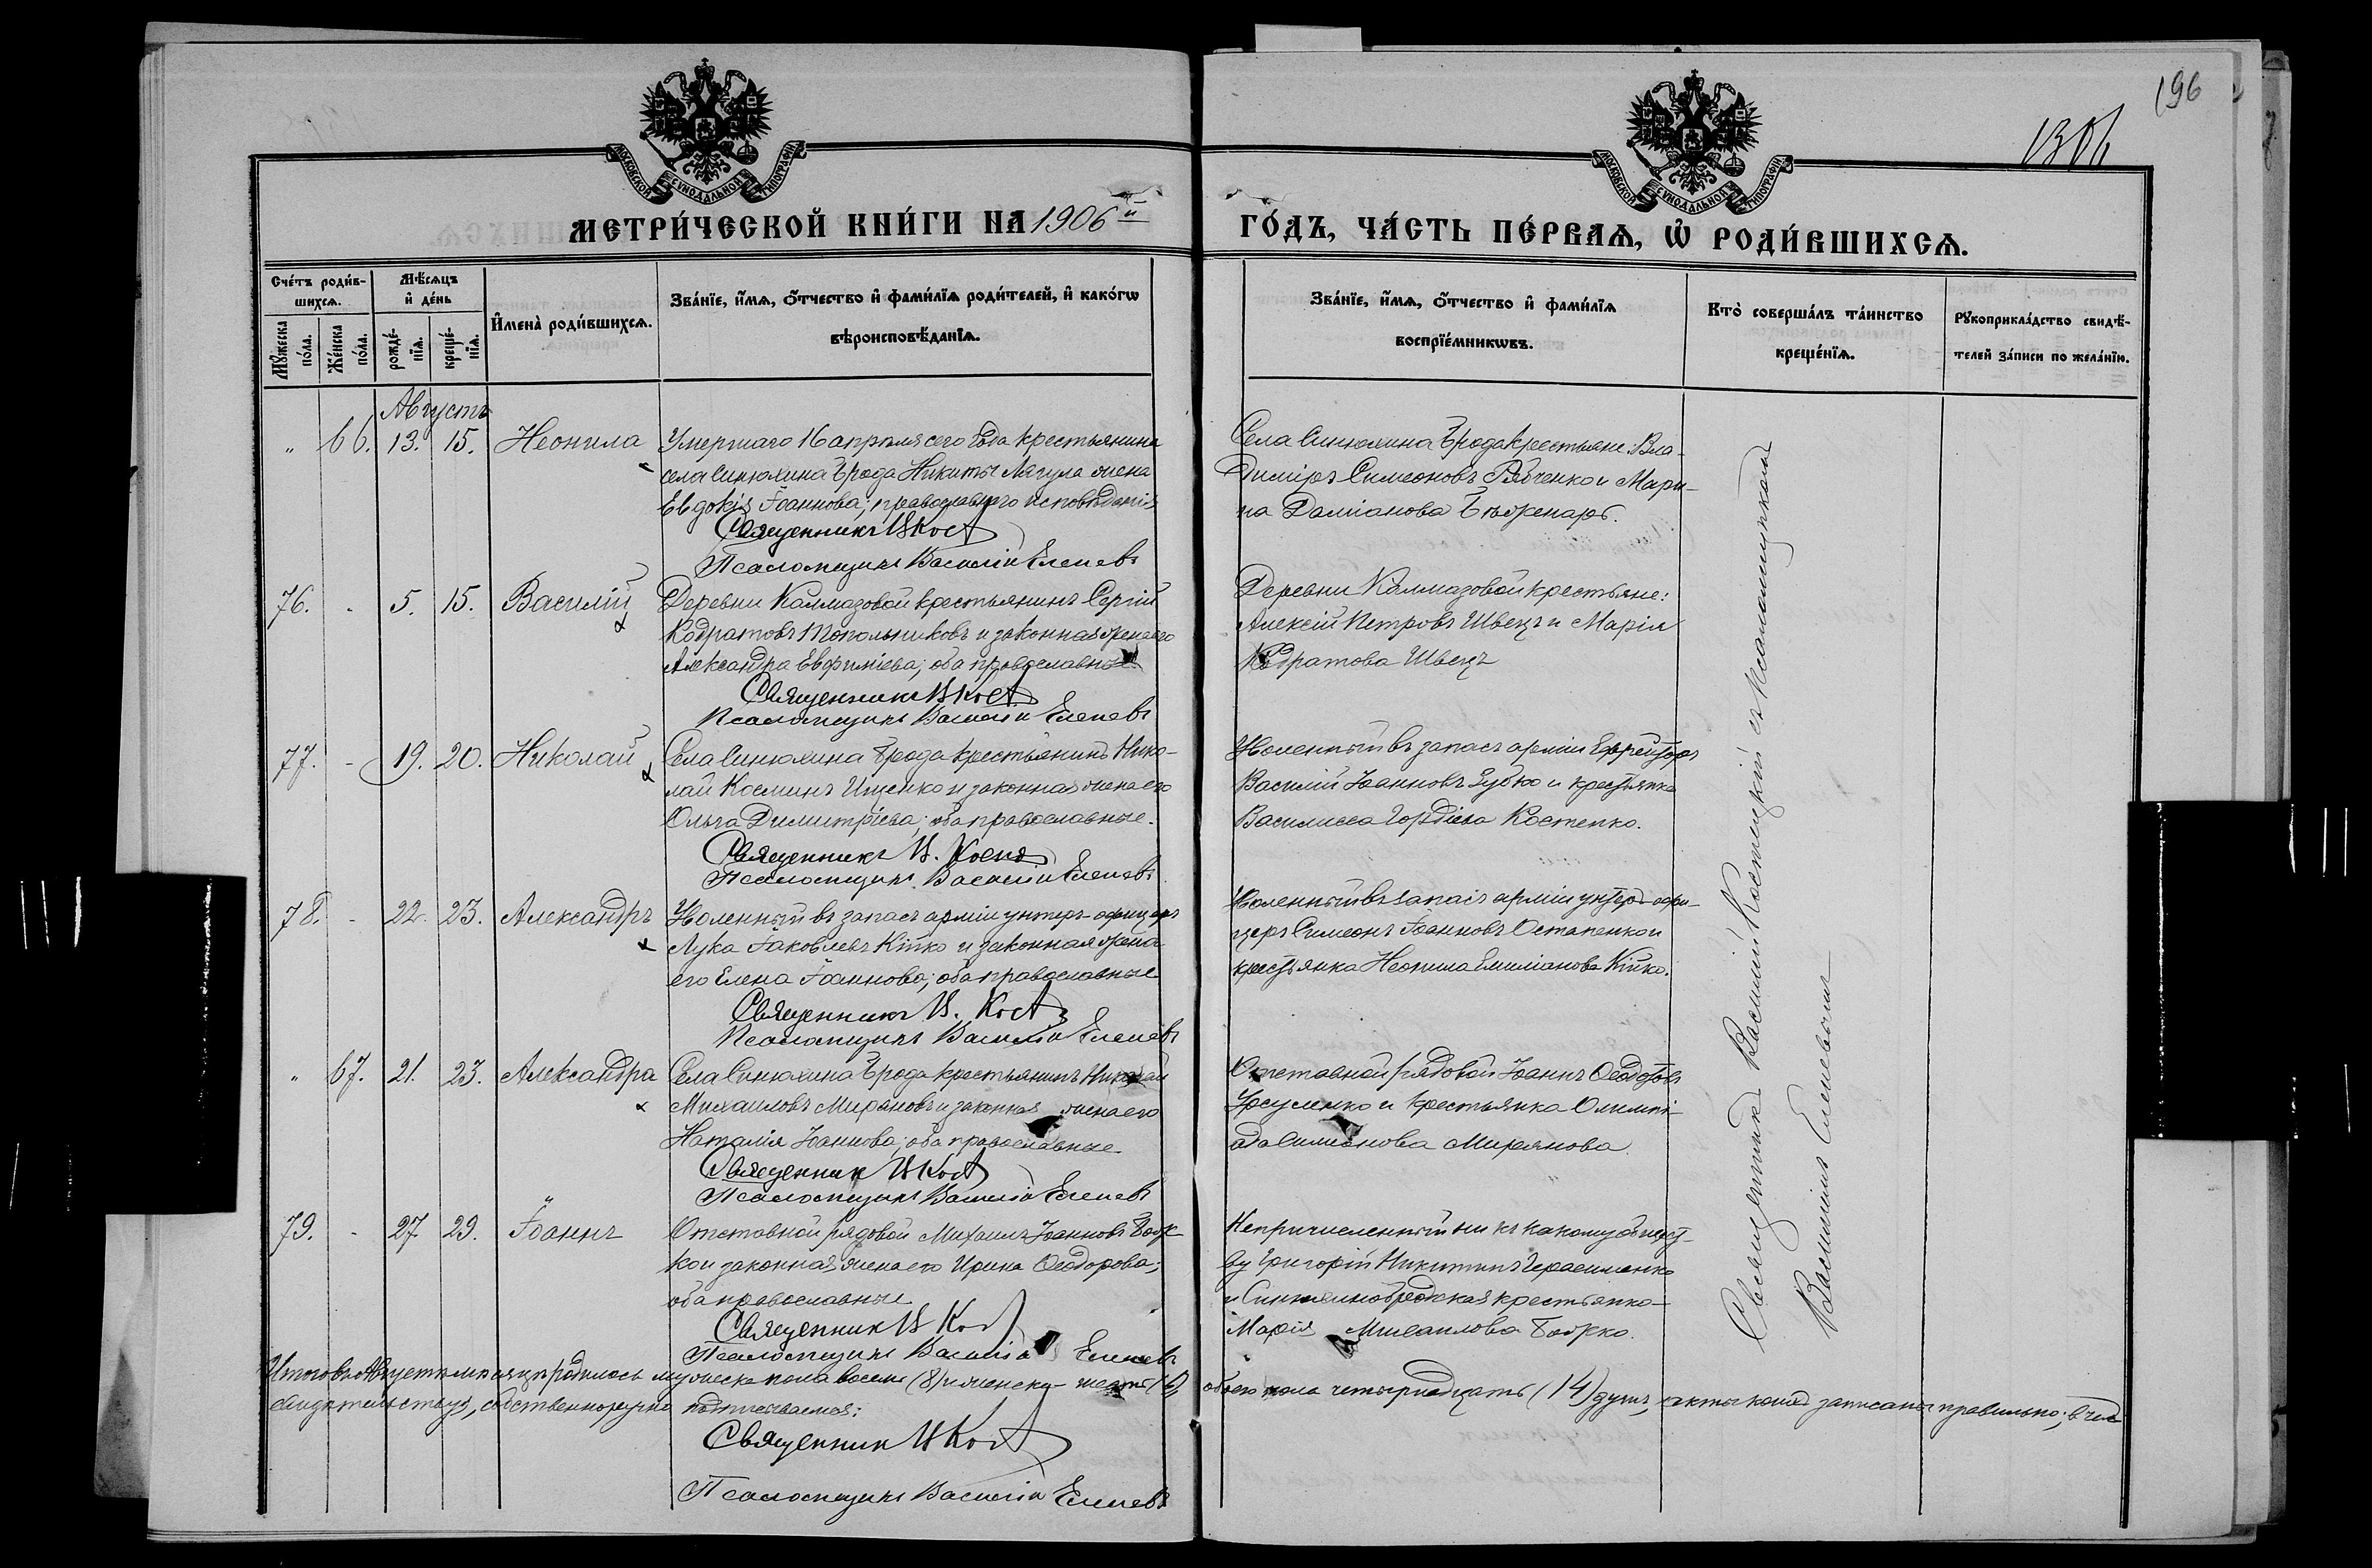 196
130 б
МОСКОВСКОЙ СѴНОДАЛЬНОЙ ТИПОГРАФІИ
МОСКОВСКОЙ СѴНОДАЛЬНОЙ ТИПОГРАФІИ
МЕТРИ́ЧЕСКОЙ КНИ́ГИ НА 1906й
ГО́ДЪ, ЧА́СТЬ ПЕ́РВАѦ, Ѽ РОДИ́ВШИХСѦ.
Сче́тъ роди́в-
шихсѧ.
Мѣ́сѧцъ
и҆ де́нь
Мꙋ́жеска
по́ла.
Же́нска
по́ла.
рожде́-
нїѧ.
креще́-
нїѧ.
И҆мена̀ роди́вшихсѧ.
Зва́нїе, и҆́мѧ, ѻ҆́тчество и҆ фами́лїѧ роди́телей, и҆ како́гѡ
вѣроисповѣ́данїѧ.
Зва́нїе, и҆́мѧ, ѻ҆́тчество и҆ фами́лїѧ
воспрїе́мникѡвъ.
Кто̀ соверша́лъ та́инство
креще́нїѧ.
Рꙋкоприкла́дство свидѣ́-
телей за́писи по жела́нїю.
Августъ
" 66. 13. 15. Неонила
Умершаго 16 апрѣля сего года крестьянина
села Синюхина Брода Никиты Лягула жена
Евдокія Іоаннова; православнаго исповѣданія
Священникъ В Кост
Псаломщикъ Василій Еленевъ
Села Синюхина Брода крестьяне: Вла-
диміръ Симеоновъ Рябченко и Мари-
на Даміанова Бѣженаръ.
76. - 5. 15. Василій
Деревни Калмазовой крестьянинъ Сергій
Кодратовъ Топольниковъ и законная жена его
Александра Евфиміева; оба православные.
Священникъ В Кост
Псаломщикъ Василій Еленевъ
Деревни Калмазовой крестьяне:
Алексій Петровъ Швецъ и Марія
Кодратова Швецъ
77. - 19. 20. Николай
Села Синюхина Брода крестьянинъ Нико-
лай Косминъ Ищенко и законная жена его
Ольга Димитріева; оба православные.
Священникъ В. Кост
Псаломщикъ Василій Еленевъ
Уволенный въ запасъ арміи Ефрейторъ
Василій Іоанновъ Зубко и крестьянка
Василисса Гордіева Костенко.
78. - 22. 23. Александръ
Уволенный въ запасъ арміи унтеръ-офицеръ
Лука Іаковлевъ Кійко и законная жена
его Елена Іоаннова; оба православные
Священникъ В. Кост
Псаломщикъ Василій Еленевъ
Уволенный въ запасъ арміи унтеръ-офи-
церъ Симеонъ Іоанновъ Остапенко и
крестьянка Неонила Емиліанова Кійко.
" 67. 21. 23. Александра
Села Синюхина Брода крестьянинъ Николай
Михаиловъ Миряновъ и законная жена его
Наталія Іоаннова; оба православные
Священник В Кост
Псаломщикъ Василій Еленевъ
Отставной рядовой Іоаннъ Ѳеодотовъ
и крестьянка Олимпі-
ада Симеонова Мирянова
79. - 27. 29. Іоаннъ
Отставной рядовой Михаилъ Іоанновъ Бож-
ко и законная жена его Ирина Ѳеодорова;
оба православные
Священник В Кост
Псаломщикъ Василій Еленевъ
Непричисленный ни къ какому общест-
ву Григорій Никитинъ Герасименко
и Синюхинобродская крестьянка
Марія Михаилова Божко.
Священникъ Василій Костецкій съ псаломщикомъ
Василіемъ Еленевымъ
Итого въ Августѣ мѣсяцѣ родилось мужеска пола восемь (8) и женска - шесть (6), обоего пола четырнадцать (14) душъ, акты коихъ записаны правильно; въ чемъ
свидѣтельствуя, собственноручно подписываемся:
Священник В Кост
Псаломщикъ Василій Еленевъ